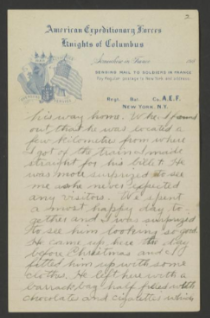 3.
American Expeditionary Forces
Knights of Columbus
Somewhere in France 191
SENDING MAIL TO SOLDIERS IN FRANCE
Regt. Bat. Co. A.E.F.
NEW YORK, N.Y.
his way home. When I found
out, that he was located a
few kilometers from where
I got off the train, I made
straight for his billet. He
was most surprised to see
me as he never expected
any visitors. We spent
a most happy day to-
gether and I was surprised
to see him looking so good.
He came up here the day
before Christmas and I
fitted him up with some
clothes. He left here with a
barrack bag half filled with
chocolates and cigarettes